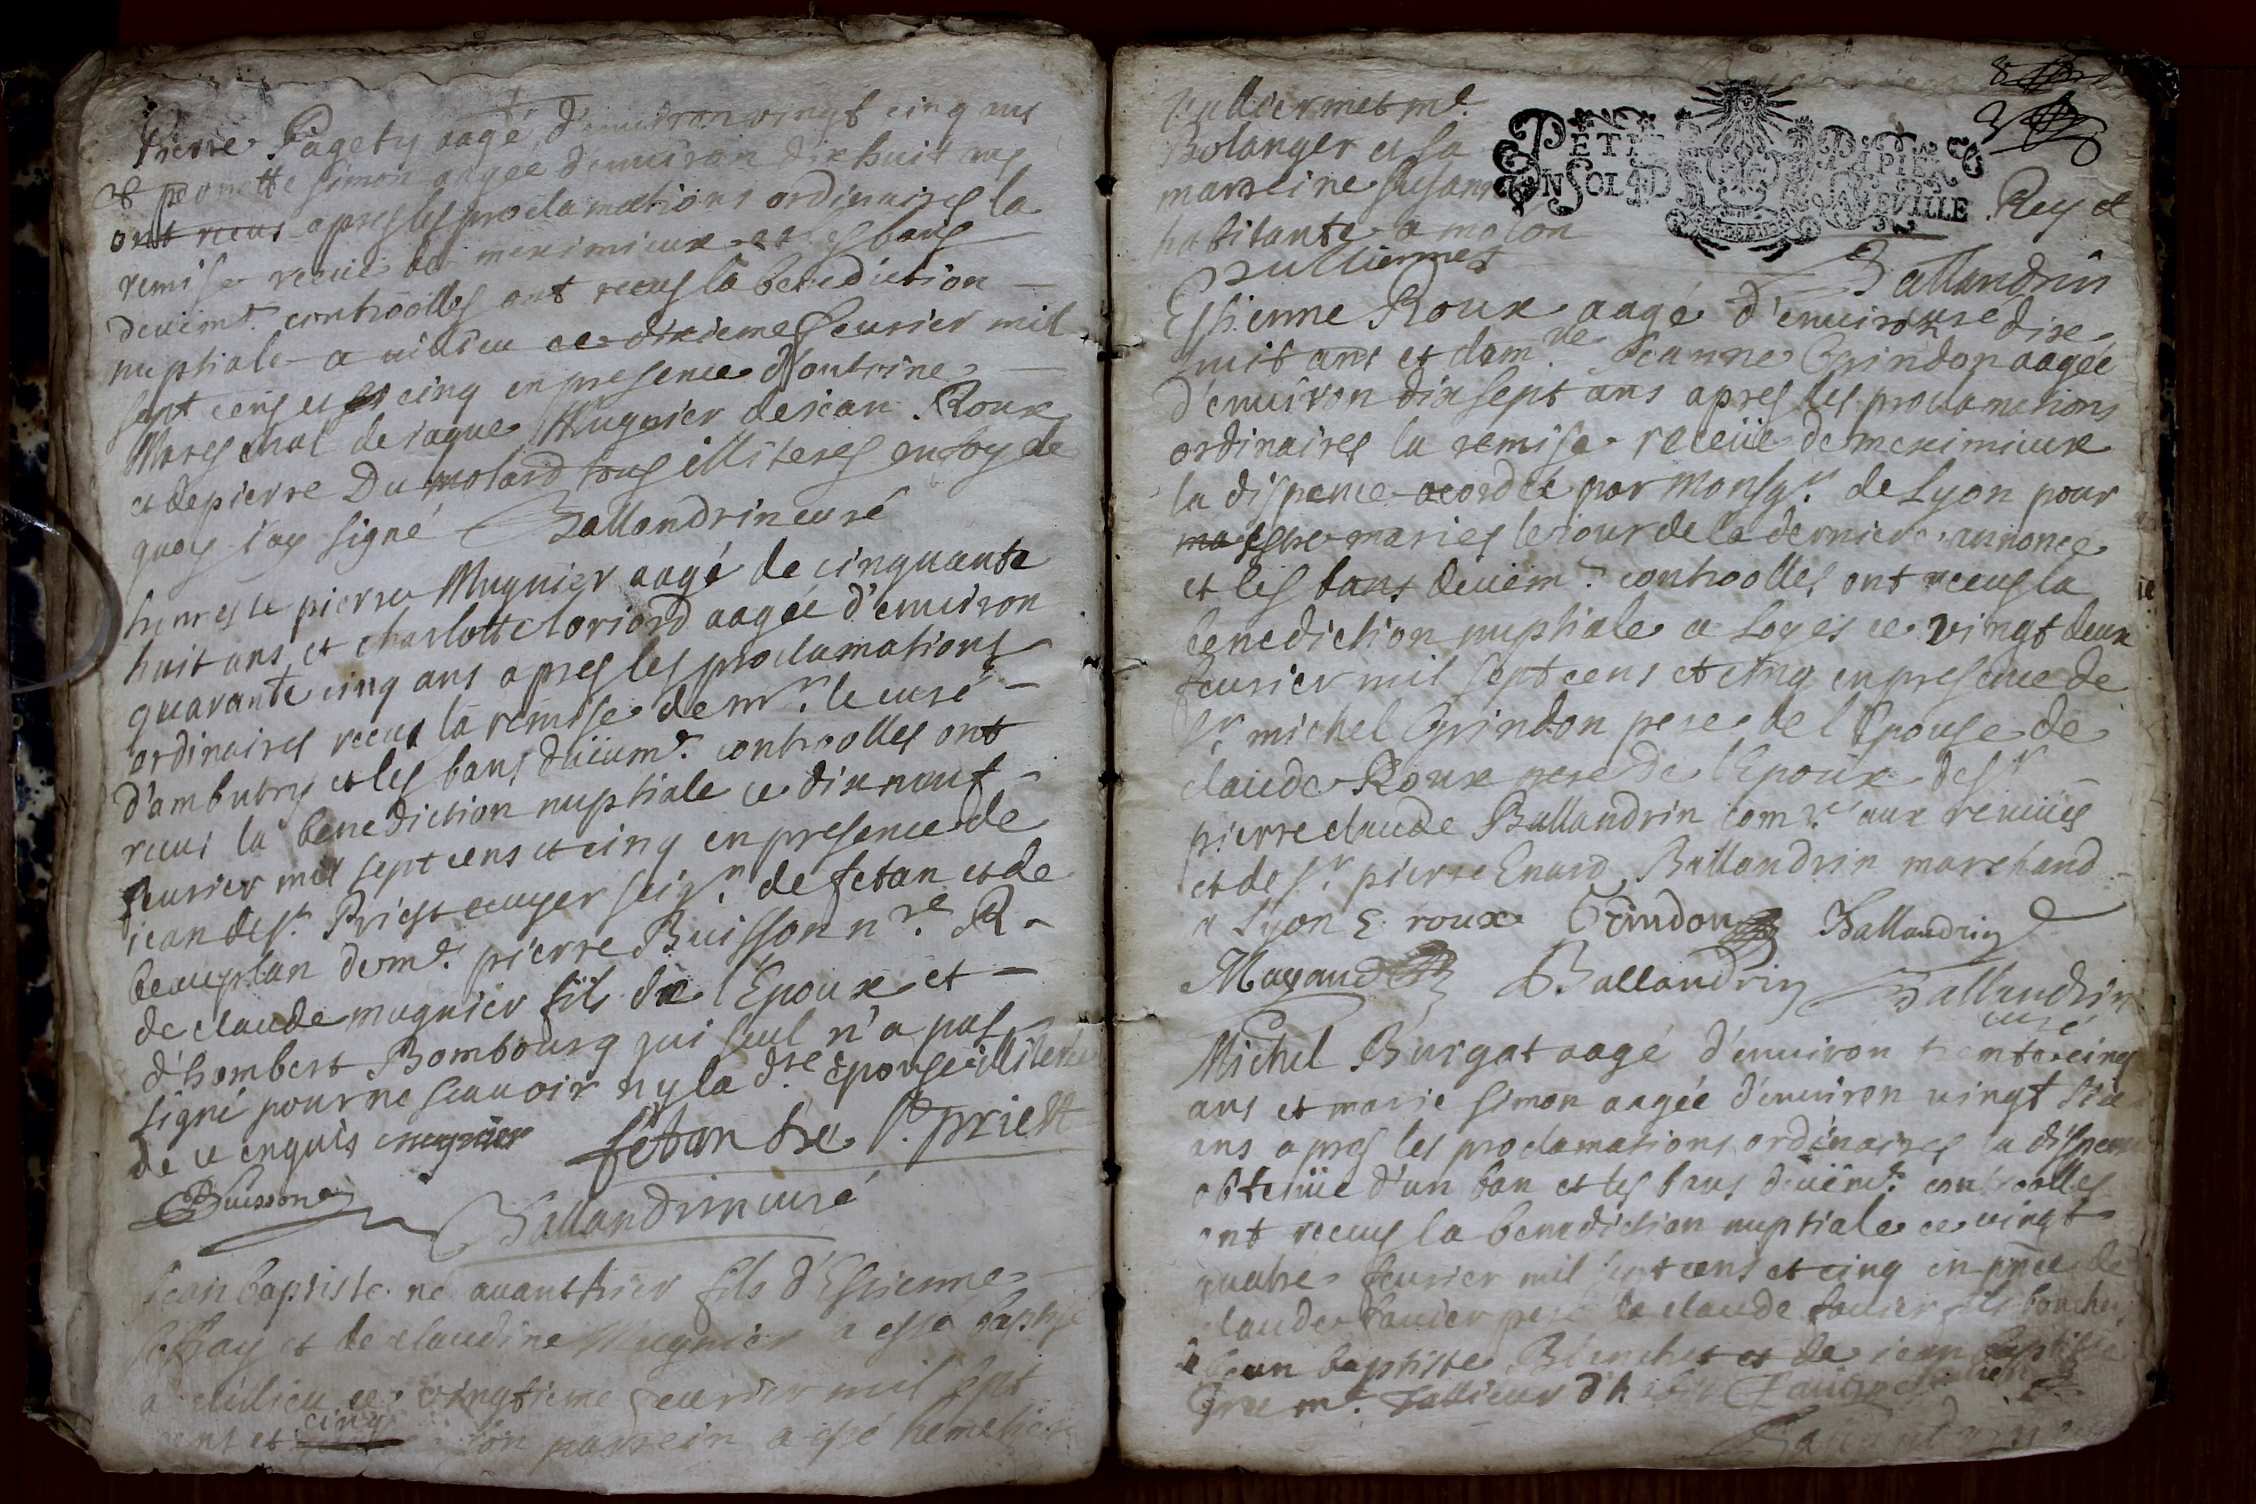 Pierre Pagety aagé d'environ vingt cinq ans
& pernette simon aagée d'environ dix huit ans
ont receus apres les proclamations ordinaires la
remise receüe de meximieux et les bans
deuëmt. controolles ont receus la benediction
nuptiale a uilieu ce dixieme feurier mil
sept cens et cinq en presence d'antoine
Mareschal de iaque Mugnier de iean Roux
et de pierre Du molard tous illiteres en foy de
quoy i'ay signé Ballandrin curé
honneste pierre Mugnier aagé de cinquante
huit ans et charlotte loriord aagée d'environ
quarante cinq ans apres les proclamations
ordinaires receus la remise de mr. le curé
d'ambutry et les bans düümt. controolles ont
receu la benediction nuptiale ce dix neuf
feurier mil sept cens et cinq en presence de
iean de st. Priest ecuyer seigr. de fetan et de
beauplan de me. pierre Buisson nre. R.
de claude mugnier fils de l'Epoux et
d'hombert Bombourg qui seul n'a pas
signé pour ne scauoir ny la dte. epouse illiterée
de ce enquis mugnier fetan de st. priest
Buisson
Ballandrin curé
Jean baptiste né auanthier fils d'Estienne
et de claudine Mugnier a esté baptisé
a uilieu ce vingtieme feurier mil sept
cens et cinq son parrein a esté
Vulliermet me.
Bolanger et sa
marreine susanne Rey et
habitante a molon
Vulliermet
Ballandrin
PETIT PAPIER
UN SOL 4 D LE VILLE
Estienne Roux aagé d'environ dix
huit ans et damlle. Jeanne Grindon aagée
d'environ dix sept ans apres les proclamations
ordinaires la remise receüe de meximieux
la dispence acordée par Monsgr. de Lyon pour
ma estre mariés le iour de la derniere annonce
et les bans deuëmt. controolles ont receus la
benediction nuptiale a Loyes ce vingt deux
feurier mil sept cens et cinq en presence de
sr. michel Grindon pere de l'Epouse de
claude Roux pere de l'Epoux de sr.
pierre claude Ballandrin comre. aux reuües
et de sr. pierre Enard Ballandrin marchand
a Lyon E. roux Grindon Ballandrin
Mayand Ballandrin Ballandrin
curé
Michel Burgat aagé d'environ trente cinq
ans et marie simon aagée d'environ vingt six
ans apres les proclamations ordinaires la dispence
obtenüe d'un ban et les bans deuëmt. controolles
ont receus la benediction nuptiale ce vingt
quatre feurier mil sept cens et cinq en pnce de
claude fauier pere de claude fauier fils
de iean baptiste Blanchet et de iean baptiste
me. Tallieur d'habit
Ballandrin